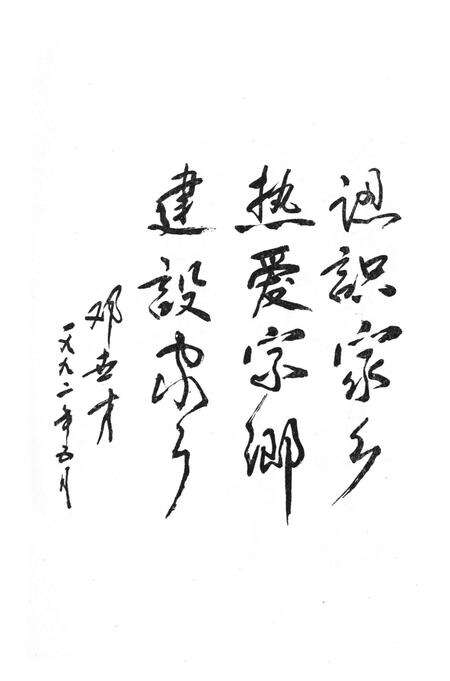 認識家乡
热爱家鄉
建設家乡
邓世才
一九九二年五月